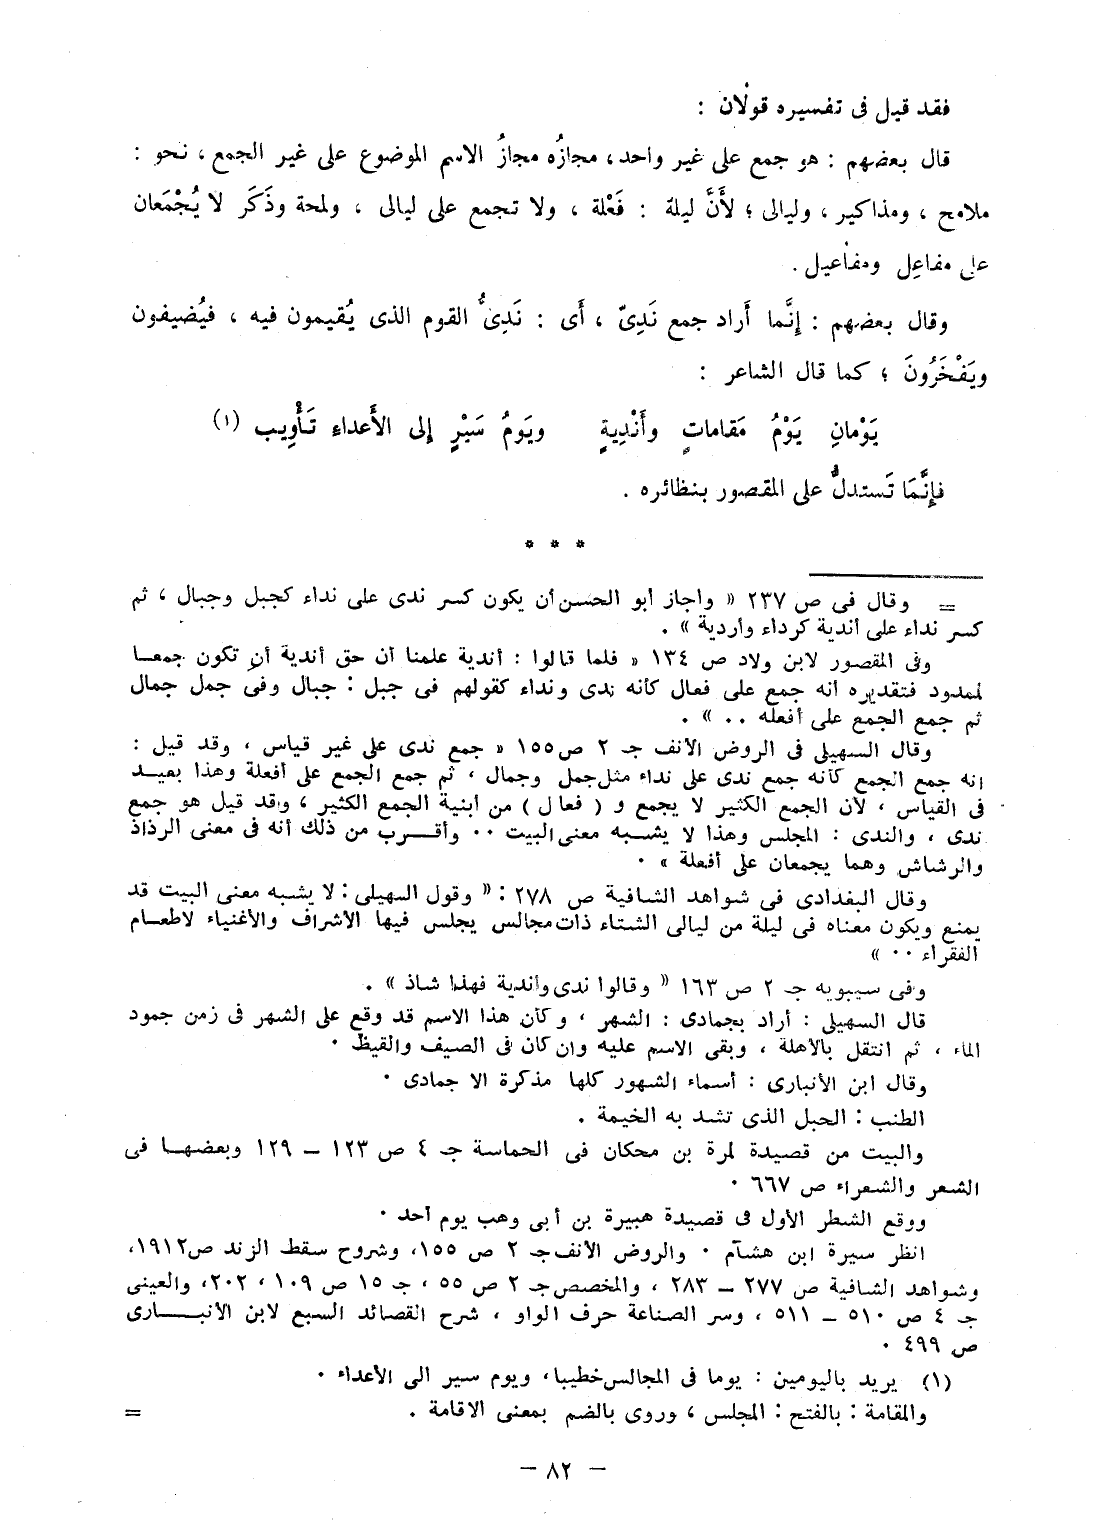 فقد قيل فى تفسيره قولان :
قال بعضهم : هو جمع على غير واحد، مجازُه مجازُ الاسم الموضوع على غير الجمع ، نحو :
ملامح ، ومذاكير ، وليالى ؛ لأَنَّ ليلة : فَعْلة ، ولا تجمع على ليالى ، ولمحة وذَكَر لا يُجْمَعان
على مفاعِل ومفاعيل .
وقال بعضهم : إِنَّما أَراد جمع نَدِىّ ، أَى : نَدِىُّ القوم الذى يُقيمون فيه ، فيُضيفون
ويَفْخَرُونَ ؛ كما قال الشاعر :
يَوْمانِ يَوْمُ مَقاماتٍ وأَنْدِيةٍ ويَومُ سَيْرٍ إلى الأَعداء تَأْوِيب (١)
فإِنَّمَا تَستدلُّ على المقصور بنظائره .
* * *
= وقال فى ص ٢٣٧ « وأجاز أبو الحسن أن يكون كسر ندى على نداء كجبل وجبال ، ثم
كسر نداء على أندية كرداء وأردية » .
وفى المقصور لابن ولاد ص ١٣٤ « فلما قالوا : أندية علمنا أن حق أندية أن تكون جمعا
لممدود فتقديره أنه جمع على فعال كأنه ندى ونداء كقولهم فى جبل : جبال وفى جمل جمال
ثم جمع الجمع على أفعله .. » .
وقال السهيلى فى الروض الأنف جـ ٢ ص ١٥٥ « جمع ندى على غير قياس ، وقد قيل :
انه جمع الجمع كأنه جمع ندى على نداء مثل جمل وجمال ، ثم جمع الجمع على أفعلة وهذا بعيد
فى القياس ، لأن الجمع الكثير لا يجمع و ( فعال ) من أبنية الجمع الكثير ، وقد قيل هو جمع
ندى ، والندى : المجلس وهذا لا يشبه معنى البيت .. وأقرب من ذلك أنه فى معنى الرذاذ
والرشاش وهما يجمعان على أفعلة » .
وقال البغدادى فى شواهد الشافية ص ٢٧٨ : « وقول السهيلى : لا يشبه معنى البيت قد
يمنع ويكون معناه فى ليلة من ليالى الشتاء ذات مجالس يجلس فيها الأشراف والأغنياء لاطعام
الفقراء .. »
وفى سيبويه جـ ٢ ص ١٦٣ « وقالوا ندى وأندية فهذا شاذ » .
قال السهيلى : أراد بجمادى : الشهر ، وكان هذا الاسم قد وقع على الشهر فى زمن جمود
الماء ، ثم انتقل بالأهلة ، وبقى الاسم عليه وان كان فى الصيف والقيظ .
وقال ابن الأنبارى : أسماء الشهور كلها مذكرة الا جمادى .
الطنب : الحبل الذى تشد به الخيمة .
والبيت من قصيدة لمرة بن محكان فى الحماسة جـ ٤ ص ١٢٣ – ١٢٩ وبعضها فى
الشعر والشعراء ص ٦٦٧ .
ووقع الشطر الأول فى قصيدة هبيرة بن أبى وهب يوم أحد .
انظر سيرة ابن هشام . والروض الأنف جـ ٢ ص ١٥٥، وشروح سقط الزند ص ١٩١٢،
وشواهد الشافية ص ٢٧٧ – ٢٨٣ ، والمخصص جـ ٢ ص ٥٥ ، جـ ١٥ ص ١٠٩ ، ٢٠٢، والعينى
جـ ٤ ص ٥١٠ – ٥١١ ، وسر الصناعة حرف الواو ، شرح القصائد السبع لابن الأنبارى
ص ٤٩٩ .
(١) يريد باليومين : يوما فى المجالس خطيبا، ويوم سير الى الأعداء .
والمقامة : بالفتح : المجلس ، وروى بالضم بمعنى الاقامة . =
– ٨٢ –